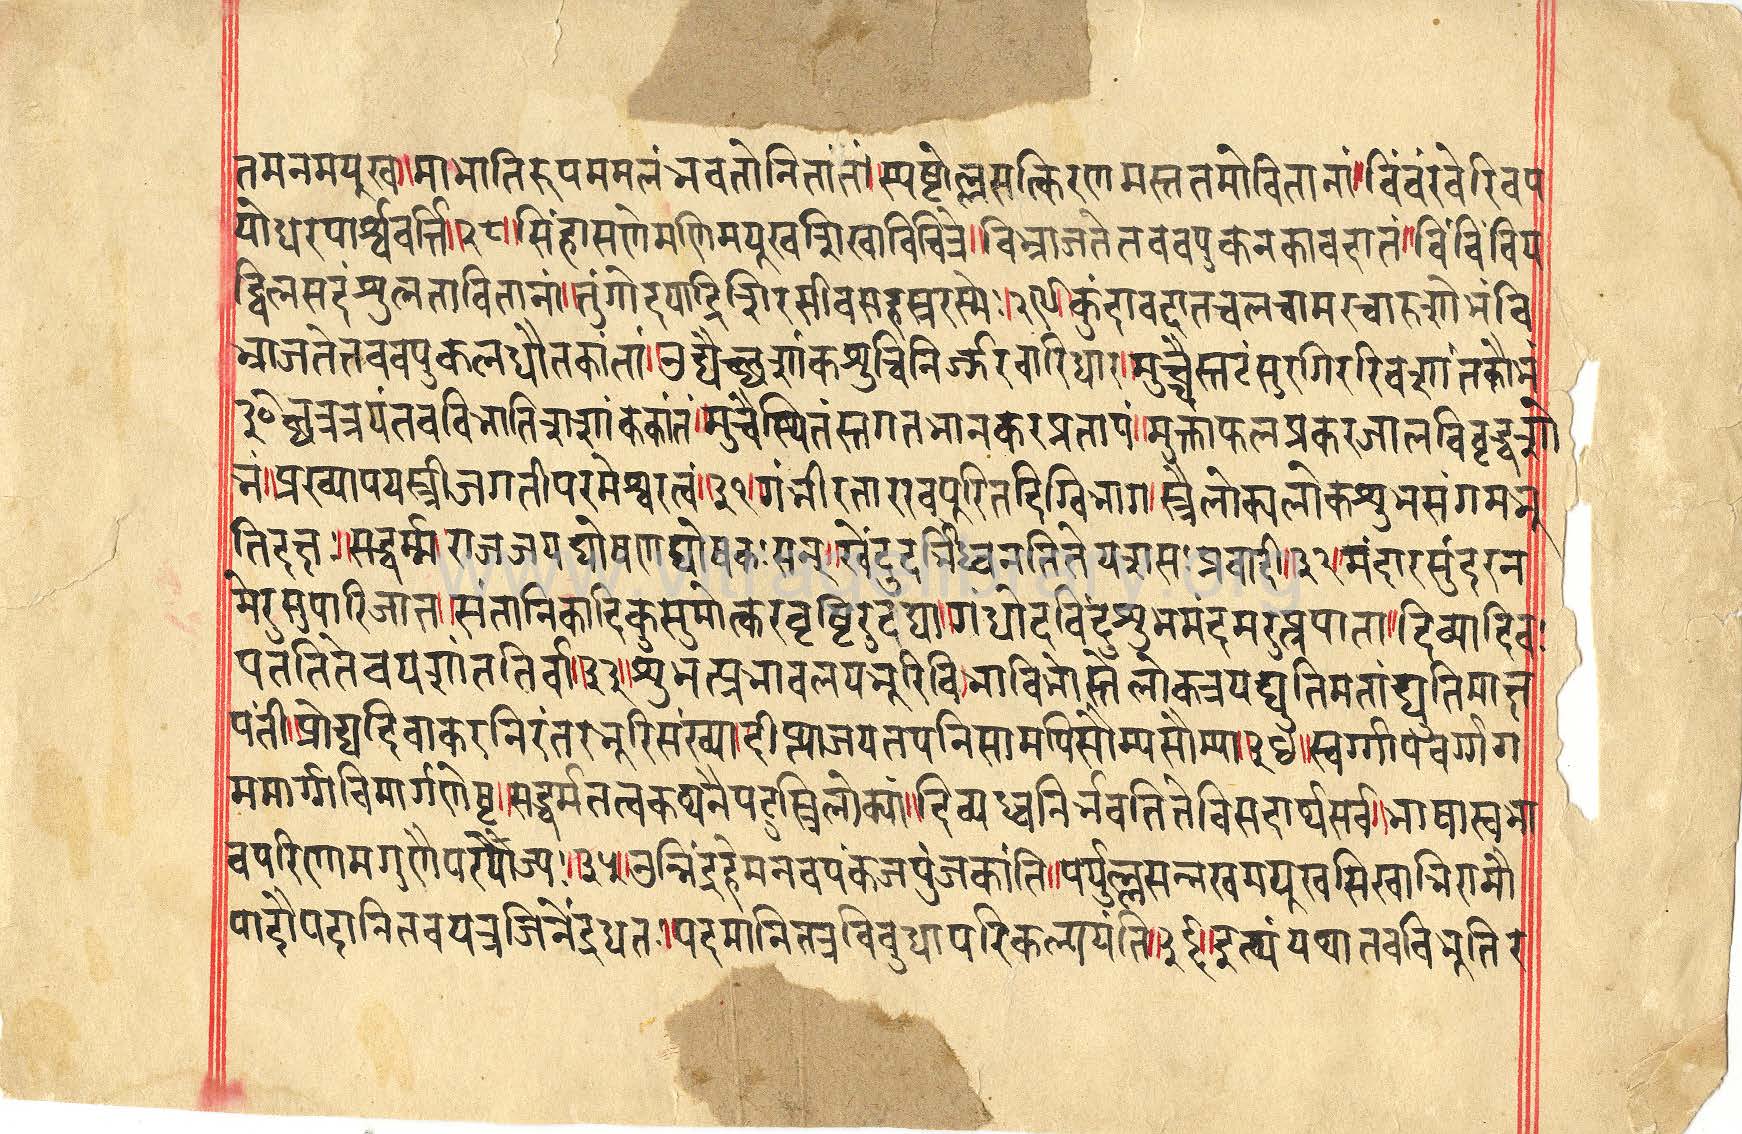 तमनमयुखा।माभातिरूपममलंभवतोनितांतां॥स्पष्टोल्लसत्किरणमस्ततमोवितानां॥विंवंरवेरिवप
योधरपार्श्ववर्त्ति॥२८॥सिंहासणेमणिमयूखशिखाविचित्रे॥विभ्राजतेतववपुकनकावदातं॥विंविंविय
द्विलसदंशुलतावितानां॥तुंगोदयाद्रिशिरसीवसहस्त्ररस्मेः॥२९॥कुंदावदातचलचामरचारुशोभंवि
भ्राजतेतववपुकलधौतकांतां॥उद्यैच्छशांकशुचिनिर्ज्झरवारिधार॥मुच्चैस्तटंसुरगिररिवशांतकौभं
३०छत्रत्रयंतवविभातिशशांकेकांतं॥मुच्चैस्थितंस्तगतभानकरप्रतापं॥मुक्ताफलप्रकरजालविवृद्धशो
भं॥प्रख्यापयस्त्रीजगतीपरमेश्वरत्वं॥३१॥गंभीरतारवपुरितदिग्विभाग॥स्त्रैलोक्यलोकशुभसंगमभू
तिदत्त:॥सद्धर्म्मराजजयघोषणघोषकःसन्॥खेदुंदुभिर्ध्वनतितेयशसःप्रवादी॥३२॥मंदारसुंदरन
मेरुसुपारिजात॥संतानिकादिकुसुमोत्करवृष्टिरुदघा॥गंधोदविंदुशुभमंदमरुत्प्रपाता॥दिव्यादिवः
पततितेवयशांततिर्वा॥३३॥शुभत्प्रभावलयभुरिविभाविभोस्तेलोकत्रयद्युतिमतांद्युतिमात्त
पंती॥प्रोद्यद्दिवाकरनिरंतरभुरिसंख्या॥दीप्त्याजयतपनिसामपिसौम्यसौम्या॥३४॥स्वर्ग्गापवर्ग्गग
ममार्ग्गविमार्गणेष्ट॥सद्धर्मतत्वकथनैपटुस्त्रिलोक्यां॥दिव्यध्वनिर्भवतितेविसदार्थसर्व॥भाषास्वभा
वपरिणामगुणैपर्योज्य:॥३५॥उन्निंद्रहेमनवपंकजपुंजकांति॥पर्युल्लसन्नखमयूखसिखाभिरामौ
पादौपदानितवयत्रजिनेंद्रधत:॥पदमानितत्रविवुधापरिकल्पयंति॥३६॥इत्थंयथातवविभुतिर